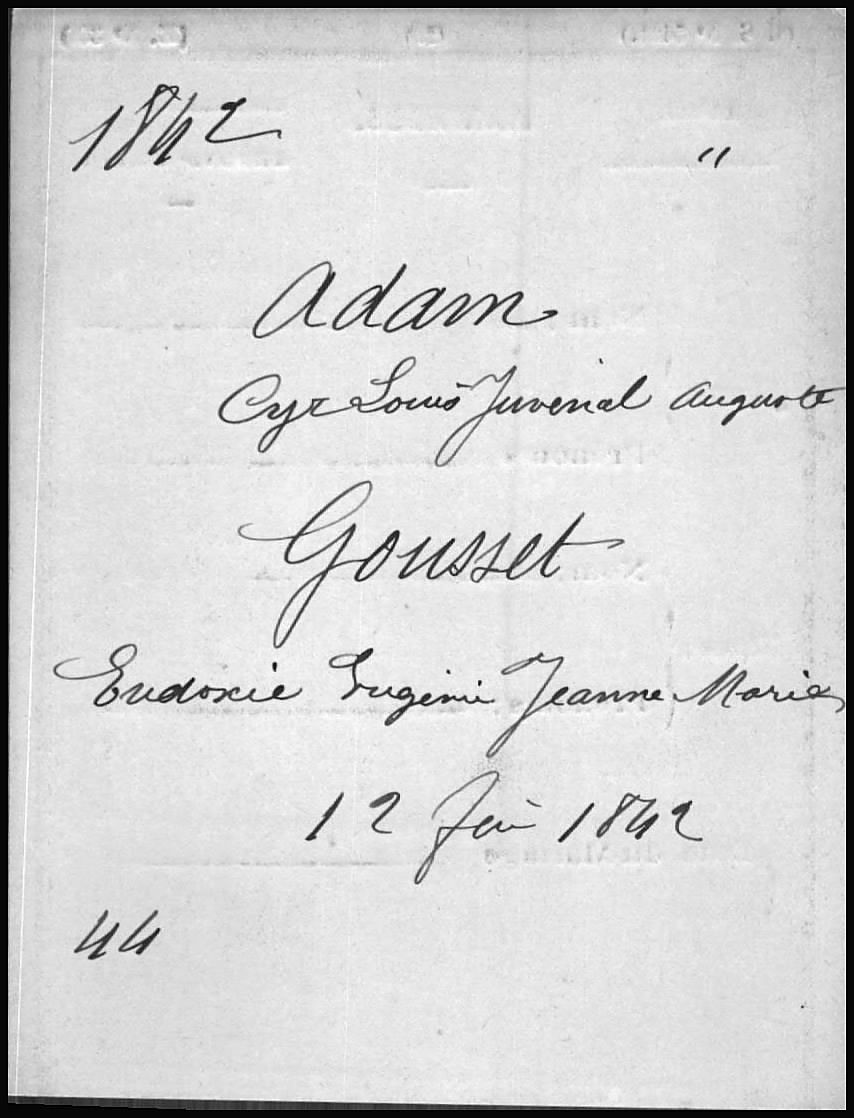 1842 "
Adam
Cyr Louis Juvenal Auguste
Gousset
Eudoxie Eugénie Jeanne Marie
12 1842
44